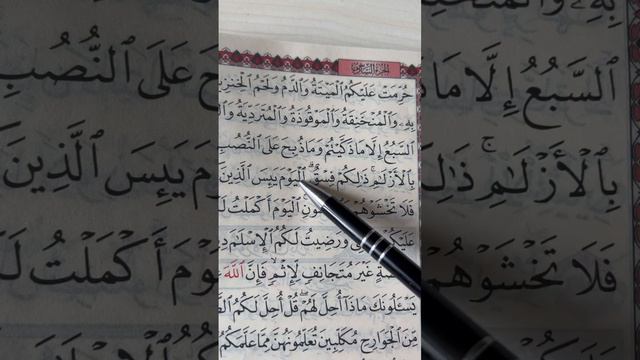 الجزء السادس
حُرِّمَتْ عَلَيْكُمُ ٱلْمَيْتَةُ وَٱلدَّمُ وَلَحْمُ ٱلْخِنزِيرِ
بِهِۦ وَٱلْمُنْخَنِقَةُ وَٱلْمَوْقُوذَةُ وَٱلْمُتَرَدِّيَةُ
ٱلسَّبُعُ إِلَّا مَا ذَكَّيْتُمْ وَمَا ذُبِحَ عَلَى ٱلنُّصُبِ
بِٱلْأَزْلَٰمِ ۚ ذَٰلِكُمْ فِسْقٌ ۗ ٱلْيَوْمَ يَئِسَ ٱلَّذِينَ
فَلَا تَخْشَوْهُمْ ٱلْيَوْمَ أَكْمَلْتُ
عَلَيْكُمْ وَرَضِيتُ لَكُمُ ٱلْإِسْلَٰمَ
غَيْرَ مُتَجَانِفٍ لِّإِثْمٍ ۙ فَإِنَّ ٱللَّهَ
يَسْـَٔلُونَكَ مَاذَآ أُحِلَّ لَهُمْ ۖ قُلْ أُحِلَّ لَكُمُ
مِّنَ ٱلْجَوَارِحِ مُكَلِّبِينَ تُعَلِّمُونَهُنَّ مِمَّا عَلَّمَكُمُ